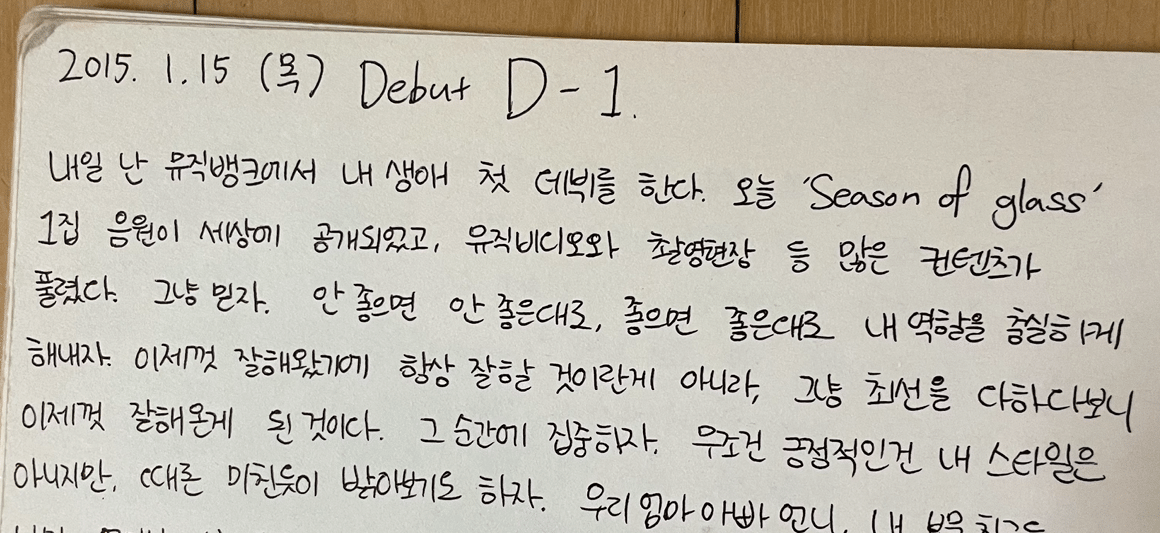 2015. 1. 15 (목) Debut D-1.
내일 난 뮤직뱅크에서 내 생애 첫 데뷔를 한다. 오늘 'Season of glass'
1집 음원이 세상에 공개되었고, 뮤직비디오와 촬영현장 등 많은 컨텐츠가
풀렸다. 그냥 믿자. 안 좋으면 안 좋은대로, 좋으면 좋은대로 내 역할을 충실하게
해내자. 이제껏 잘해왔기에 항상 잘할 것이란게 아니라, 그냥 최선을 다하다보니
이제껏 잘해온게 된 것이다. 그 순간에 집중하자. 무조건 긍정적인건 내 스타일은
아니지만, 때론 미친듯이 밝아보기도 하자. 우리 엄마 아빠 언니, 내